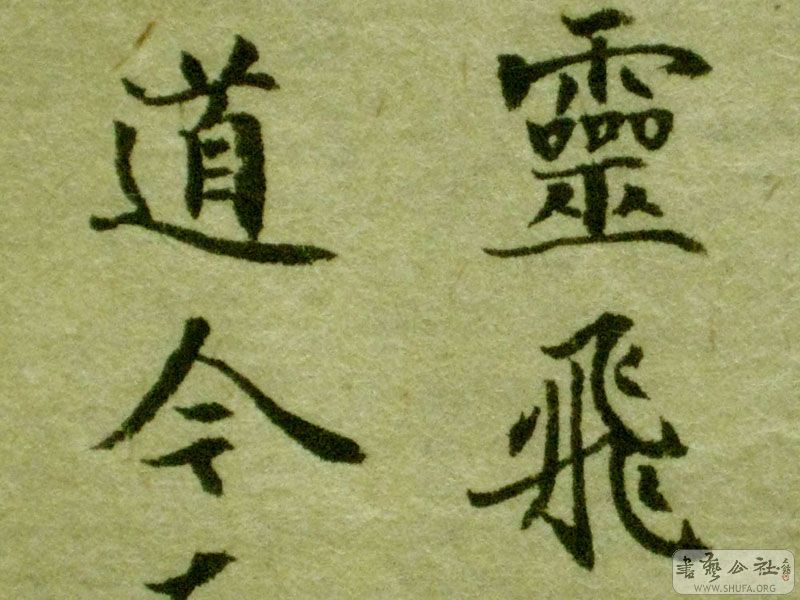 靈飛
道今
書藝公社
WWW.SHUFA.ORG